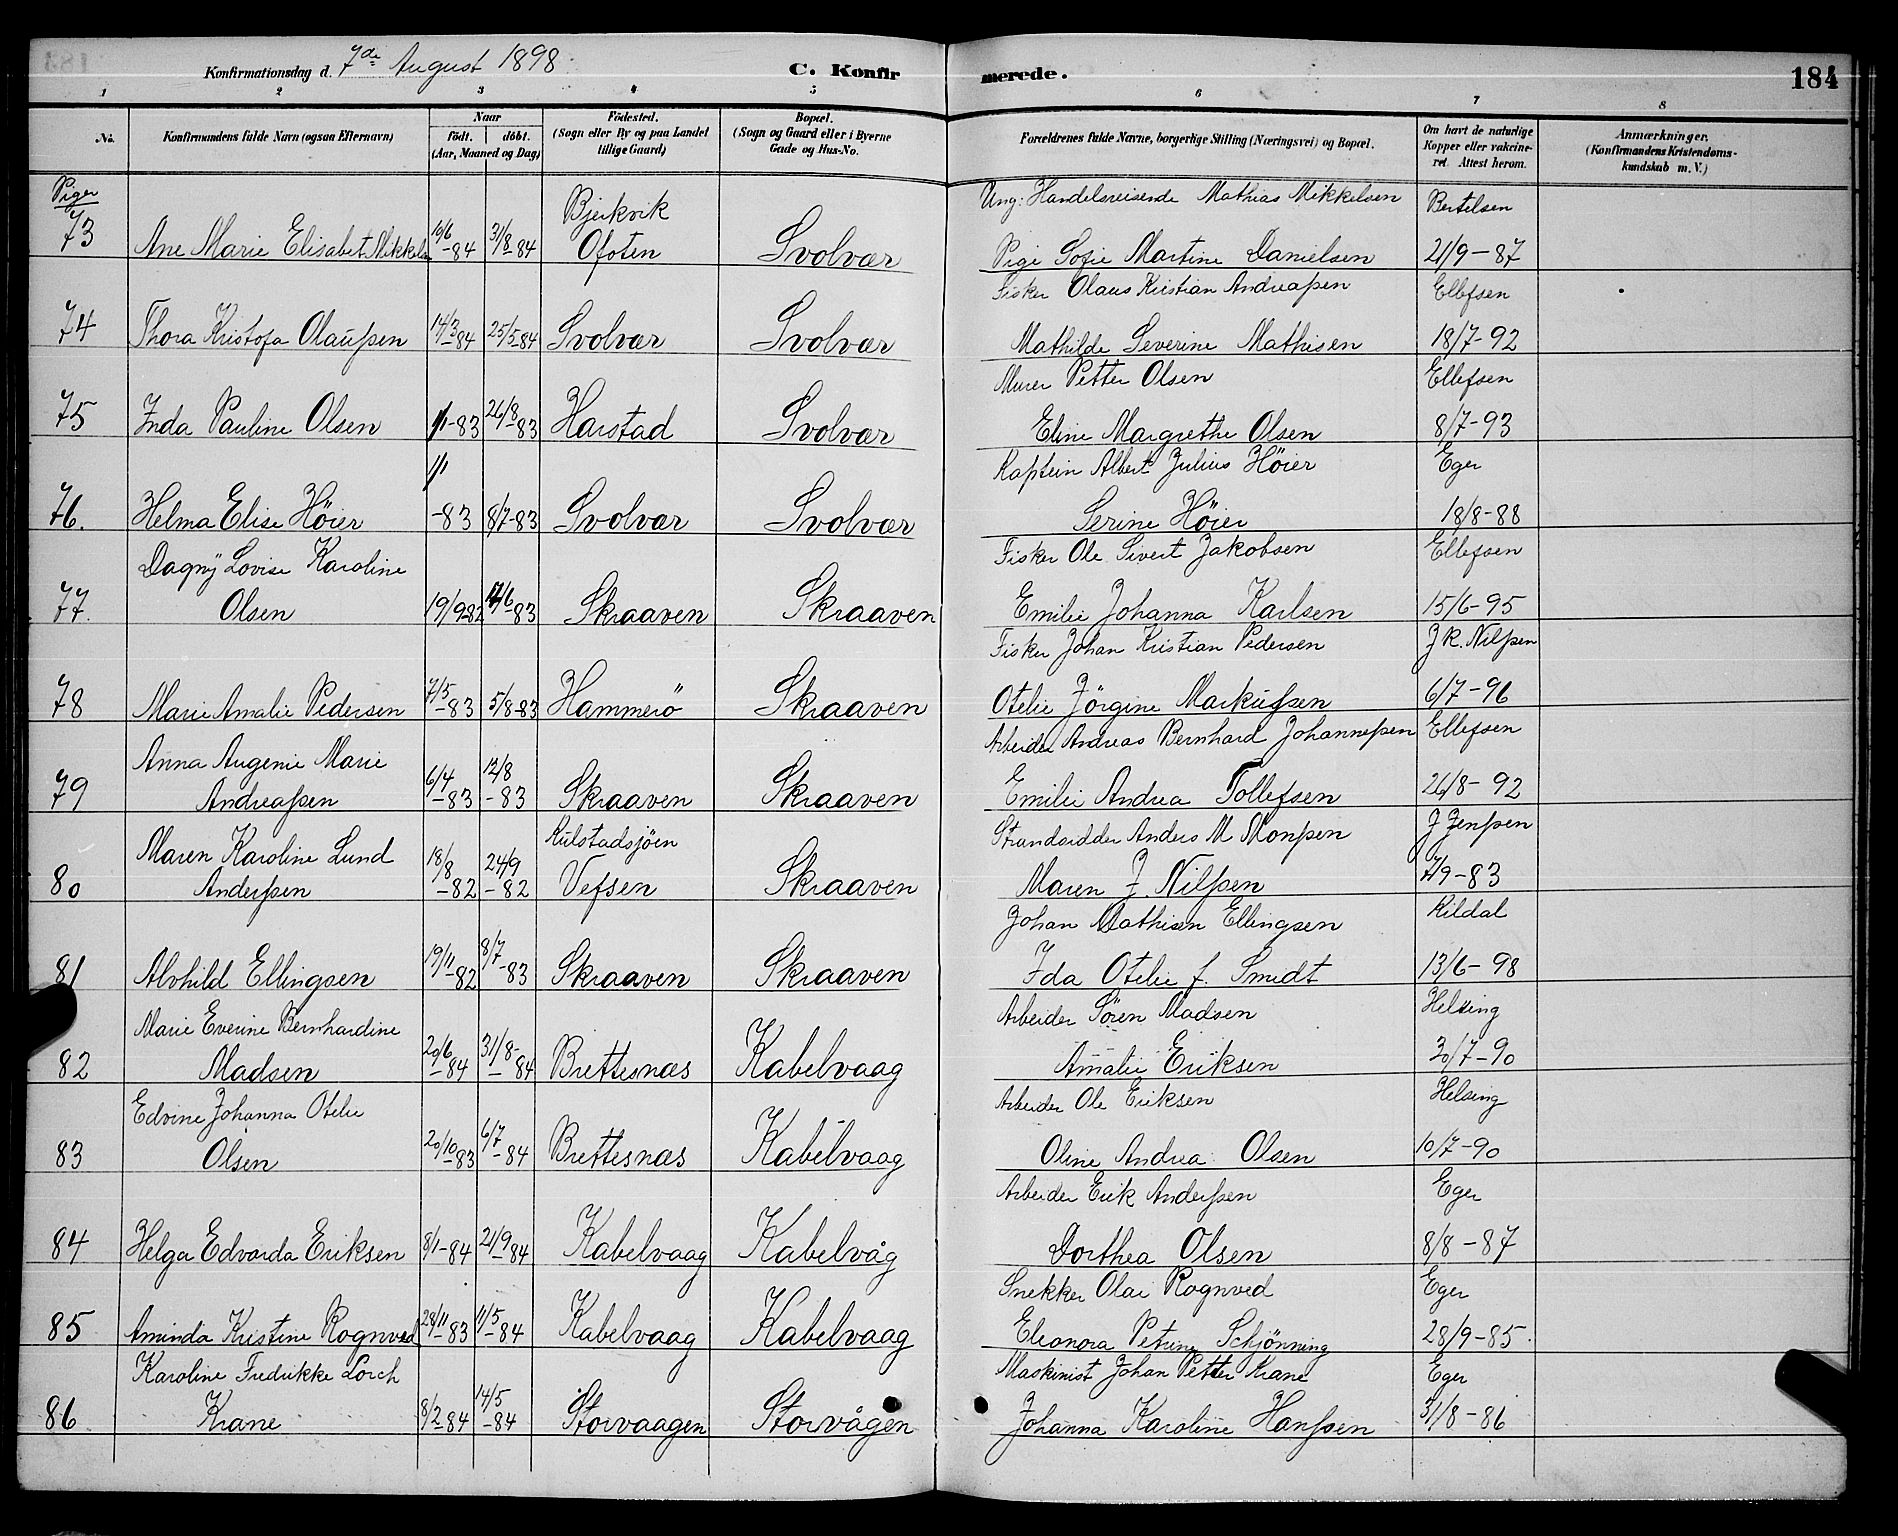 Konfirmationsdag d. 7de August 1898
C. Konfirmerede.
184
1 2 3 4 5 6 7 8
No.
Konfirmandens fulde Navn (ogsaa Efternavn)
Naar
født. | døbt.
(Aar, Maaned og Dag)
Fødested.
(Sogn eller By og paa Landet
tillige Gaard)
Bopæl.
(Sogn og Gaard eller i Byerne
Gade og Hus-No.
Forældrenes fulde Navne, borgerlige Stilling (Næringsvei) og Bopæl.
Om havt de naturlige
Kopper eller vakcine-
ret. Attest herom.
Anmærkninger.
(Konfirmandens Kristendoms-
kundskab m. V.)
Piger
Bjerkvik Ung: Handelsreisende Mathias Mikkelsen Bertelsen
73 Ane Marie Elisabet Mikkelsen 10/6-84 31/8-84 Ofoten Svolvær Pige Sofie Martine Danielsen 21/9-87
Fisker Olaus Kristian Andreassen Ellefsen
74 Thora Kristofa Olaussen 14/3 84 25/5-84 Svolvær Svolvær Mathilde Severine Mathisen 18/7-92
Murer Petter Olsen Ellefsen
75 Inda Pauline Olsen 1/1-83 26/8-83 Harstad Svolvær Eline Margrethe Olsen 8/7-93
Kaptein Albert Julius Höier Eger
76. Helma Elise Höier 1/1-83 8/7-83 Svolvær Svolvær Serine Höier 18/8-88
Dagny Lovise Karoline Fisker Ole Sivert Jakobsen Ellefsen
77. Olsen 19/9-82 17/6-83 Skraaven Skraaven Emilie Johanna Karlsen 15/6-95
Fisker Johan Kristian Pedersen J K. Nilssen
78 Marie Amalie Pedersen 7/5-83 5/8-83 Hammerö Skraaven Otelie Jörgine Markussen 6/7-96
Anna Augenie Marie Arbeider Andreas Bernhard Johannessen Ellefsen
79 Andreassen 6/4-83 12/8-83 Skraaven Skraaven Emilie Andrea Tollefsen 26/8-92
Maren Karoline Lund Kulstadsjöen Strandsidder Anders M Monssen J Jenssen
80 Anderssen 18/8-82 24/9-82 Vefsen Skraaven Maren J. Nilssen 7/9-83
Johan Mathisen Ellingsen Kildal
81 Alvhild Ellingsen 19/11-82 8/7-83 Skraaven Skraaven Ida Otelie f. Smidt 13/6-98
Marie Everine Bernhardine Arbeider Sören Madsen Helsing
82 Madsen 20/6-84 31/8-84 Brettesnæs Kabelvaag Amalie Eriksen 30/7-90
Edvine Johanna Otelie Arbeider Ole Eriksen Helsing
83 Olsen 20/10 83 6/7-84 Brettesnæs Kabelvaag Oline Andrea Olsen 10/7-90
Arbeider Erik Anderssen Eger
84 Helga Edvarda Eriksen 8/1-84 21/9 84 Kabelvaag Kabelvåg Dorthea Olsen 8/8-87
Snekker Olai Rognved Eger
85 Aminda Kristine Rognved 28/11-83 11/5-84 Kabelvaag Kabelvaag Eleonora Petrine Schjönning 28/9-85.
Karoline Fredrikke Lorch Maskinist Johan Petter Krane Eger
86 Krane 8/2-84 14/5-84 Storvaagen Storvågen Johanna Karoline Hanssen 31/8-86